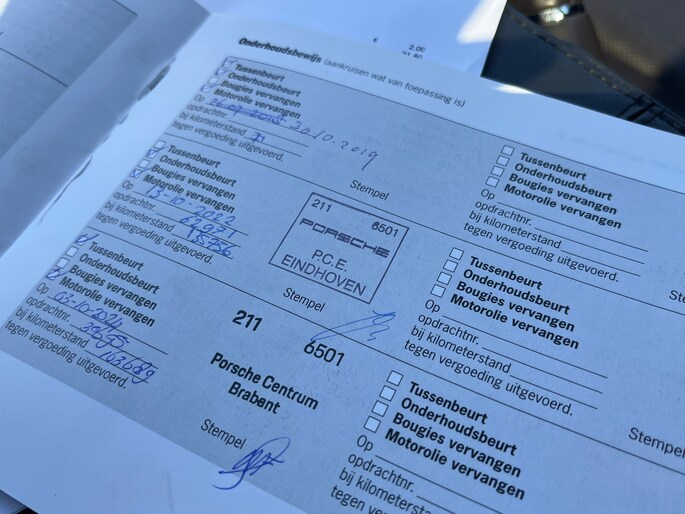 € 2,00
Onderhoudsbewijs (aankruisen wat van toepassing is)
Tussenbeurt
Onderhoudsbeurt
Bougies vervangen
Motorolie vervangen
Op 20.10.2019
opdrachtnr.
bij kilometerstand
tegen vergoeding uitgevoerd.
Stempel
Tussenbeurt
Onderhoudsbeurt
Bougies vervangen
Motorolie vervangen
Op 13-10-2022
opdrachtnr.
bij kilometerstand
tegen vergoeding uitgevoerd.
211 6501
PORSCHE
P.C.E.
EINDHOVEN
Stempel
Tussenbeurt
Onderhoudsbeurt
Bougies vervangen
Motorolie vervangen
Op
opdrachtnr.
bij kilometerstand 103689
tegen vergoeding uitgevoerd.
211 6501
Porsche Centrum
Brabant
Stempel
Tussenbeurt
Onderhoudsbeurt
Bougies vervangen
Motorolie vervangen
Op
opdrachtnr.
bij kilometerstand
tegen vergoeding uitgevoerd.
Tussenbeurt
Onderhoudsbeurt
Bougies vervangen
Motorolie vervangen
Op
opdrachtnr.
bij kilometerstand
tegen vergoeding uitgevoerd.
Stempel
Tussenbeurt
Onderhoudsbeurt
Bougies vervangen
Motorolie vervangen
Op
opdrachtnr.
bij kilometerstand
tegen vergoeding